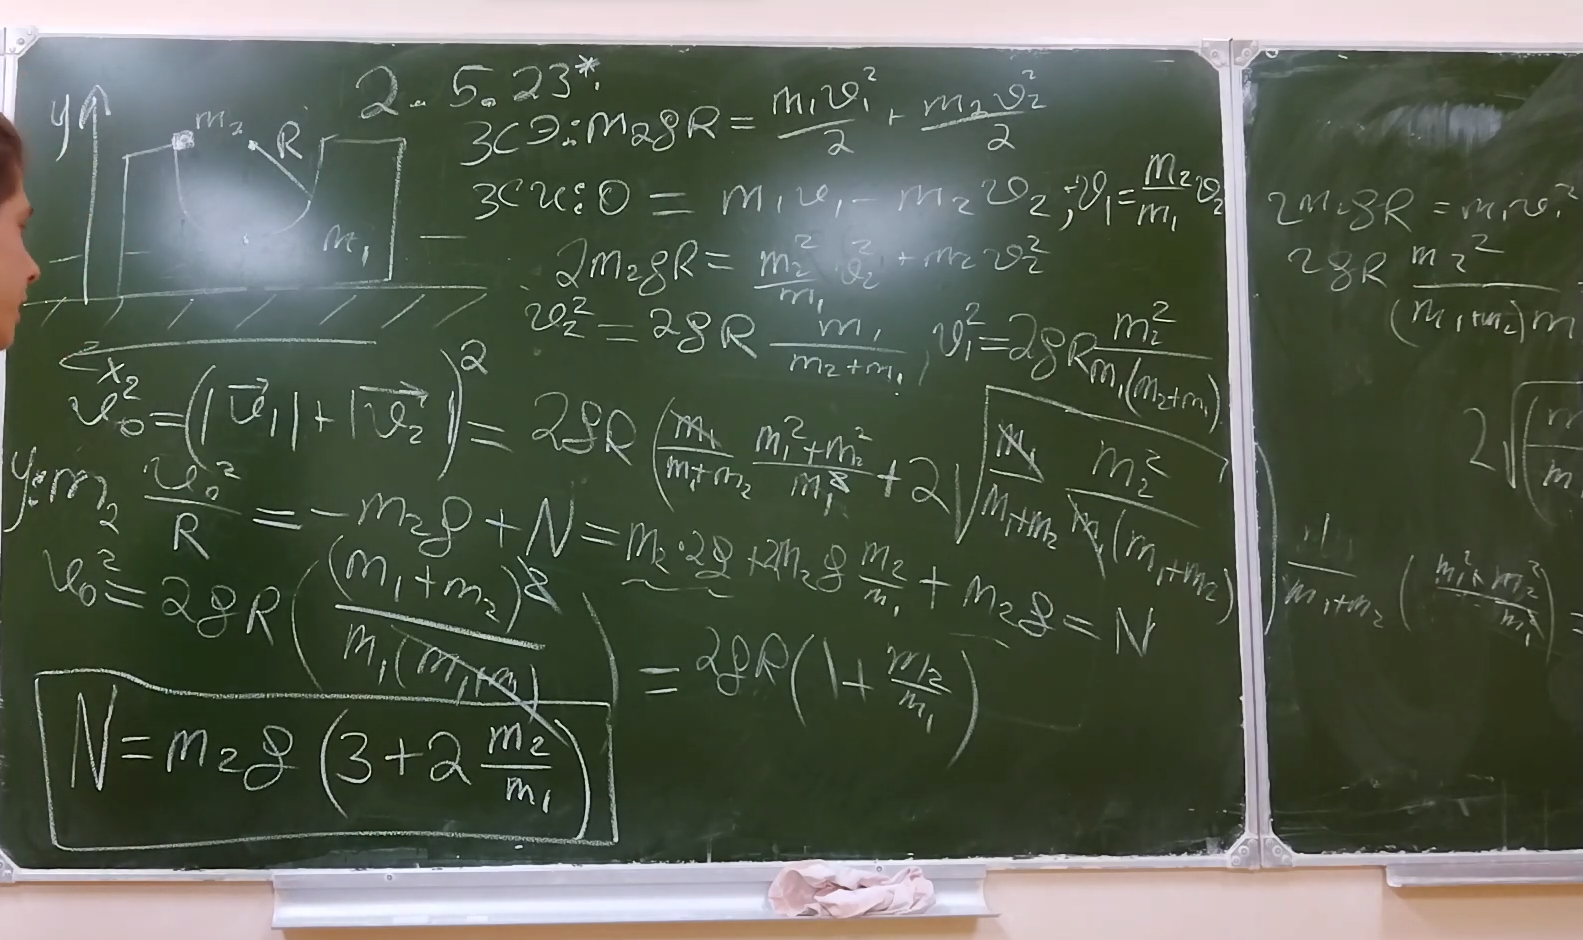 2.5.23*.
y m₂ R m₁
x
ЗСЭ: m₂gR = m₁v₁²/2 + m₂v₂²/2
ЗСИ: 0 = m₁v₁ - m₂v₂; v₁ = m₂/m₁ v₂
2m₂gR = m₂²/m₁ v₂² + m₂v₂²
v₂² = 2gR m₁/(m₂+m₁), v₁² = 2gR m₂²/(m₁(m₂+m₁))
v₀² = (|v⃗₁| + |v⃗₂|)² = 2gR (m₁/(m₁+m₂) (m₁²+m₂²)/m₁² + 2√(m₁/(m₁+m₂) m₂²/(m₁(m₁+m₂))))
y: m₂ v₀²/R = -m₂g + N = m₂·2g + 2m₂g m₂/m₁ + m₂g = N
v₀² = 2gR ((m₁+m₂)²/(m₁(m₁+m₂))) = 2gR(1 + m₂/m₁)
N = m₂g (3 + 2 m₂/m₁)
2m₂gR = m₁v₁²
2gR m₂²/((m₁+m₂)m
2√((m/m
/(m₁+m₂) ((m₁²+m₂²)/m₁²) =